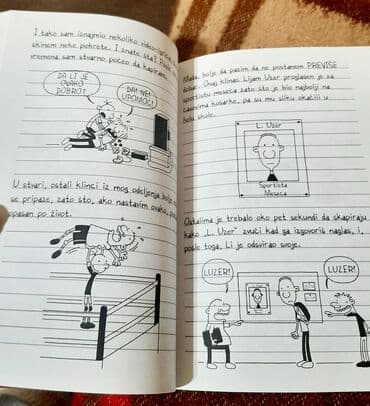 I tako sam iznajmio nekoliko video-igrica
skinem neke pokrete. I znate šta? Posle
vremena sam stvarno počeo da kapiram
DA LI JE
OVAKO
DOBRO?
DA! NE!
UPOMOĆ!
U stvari, ostali klinci iz mog odeljenja bolje
se pripaze, zato što, ako nastavim ovako,
opasan po život.
Mada, bolje da pazim da ne postanem PREVIŠE
dobar. Onaj klinac Lijam Uzer proglašen je za
sportistu meseca zato što je bio najbolji na
časovima košarke, pa su mu sliku okačili u
holu škole.
L. Uzer
Sportista
Meseca
Ostalima je trebalo oko pet sekundi da skapiraju
kako „L. Uzer" zvuči kad ga izgovoriš naglas, i,
posle toga, Li je odsvirao svoje.
LUZER!
LUZER!